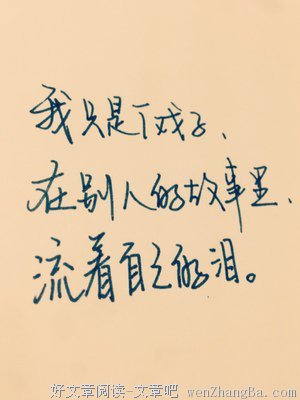 我只是个戏子、
在别人的故事里、
流着自己的泪。
好文章阅读-文章吧 wenZhangBa.com